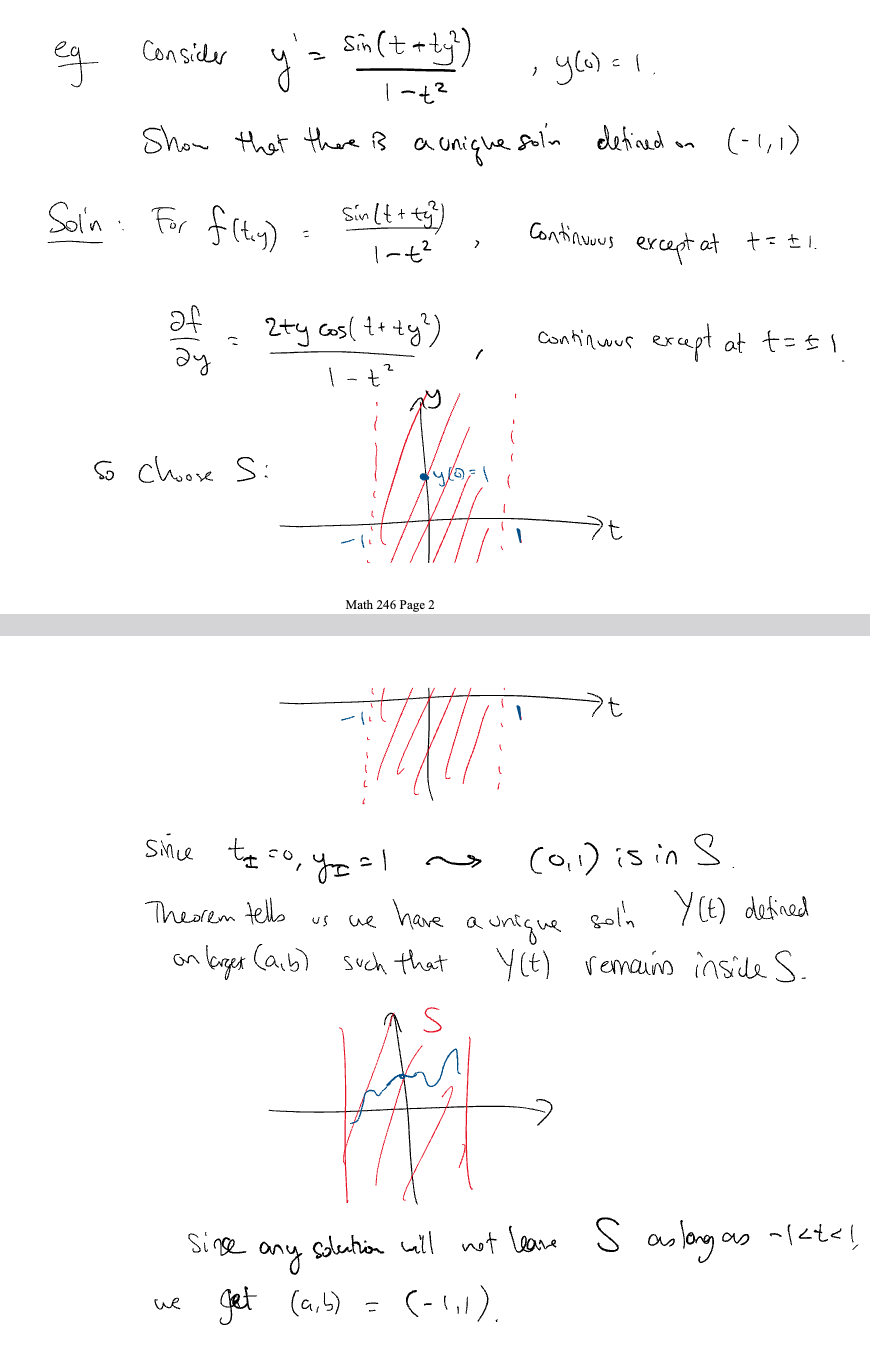 eg Consider y' = sin(t + ty²) / 1 - t² , y(0) = 1.
Show that there is a unique sol'n defined on (-1, 1)
Sol'n : For f(t,y) = sin(t + ty²) / 1 - t² , continuous except at t = ± 1.
∂f/∂y = 2ty cos(t + ty²) / 1 - t² , continuous except at t = ± 1.
y
So choose S:
y(0) = 1
-1 1 t
Math 246 Page 2
-1 1 t
Since t_I = 0, y_I = 1 ⇝ (0,1) is in S.
Theorem tells us we have a unique sol'n Y(t) defined
on larger (a,b) such that Y(t) remains inside S.
S
Since any solution will not leave S as long as -1<t<1,
we get (a,b) = (-1,1).